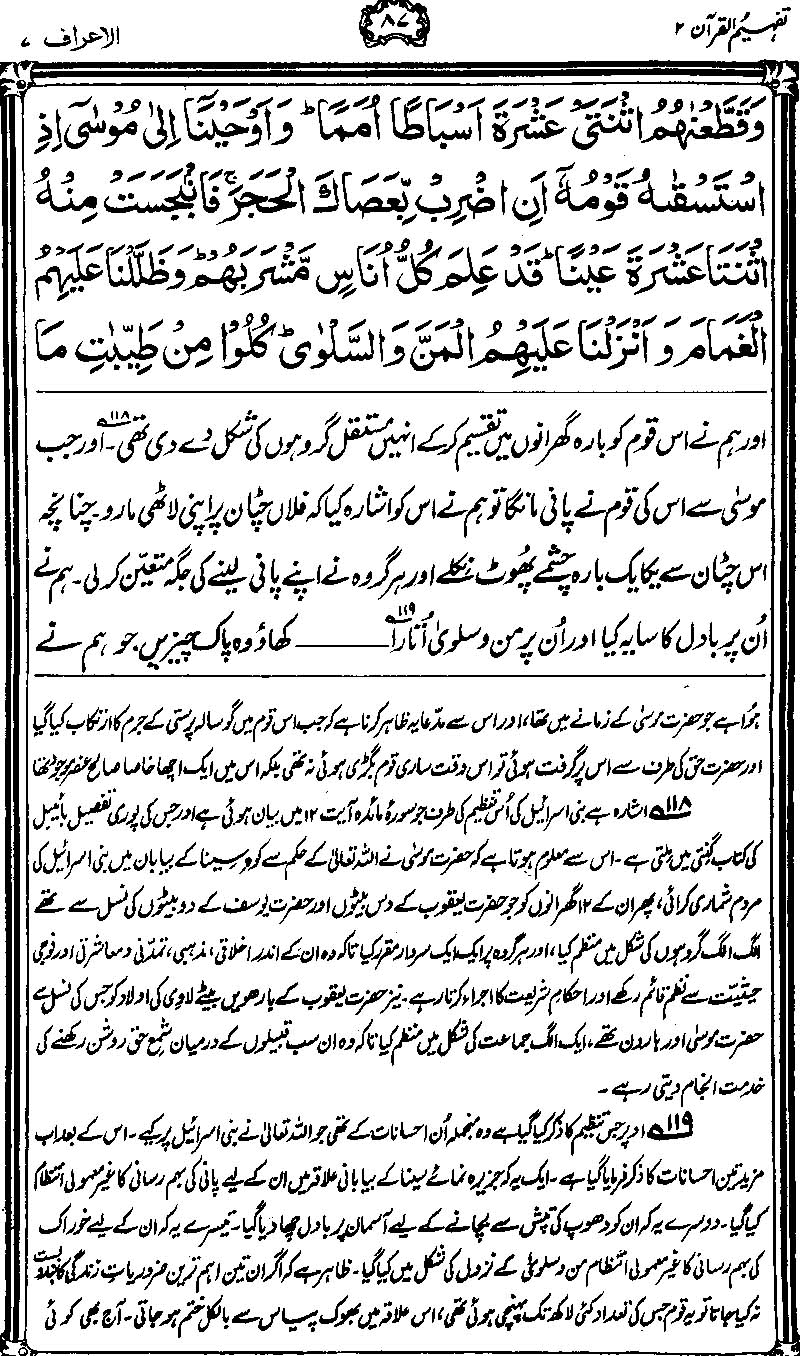 تفہیم القرآن ۲
۸۷
الاعراف ۷
وَقَطَّعْنٰهُمُ اثْنَتَیْ عَشْرَةَ اَسْبَاطًا اُمَمًا ؕ وَ اَوْحَیْنَاۤ اِلٰی مُوْسٰۤی اِذِ
اسْتَسْقٰىهُ قَوْمُهٗۤ اَنِ اضْرِبْ بِّعَصَاكَ الْحَجَرَ ۚ فَانْۢبَجَسَتْ مِنْهُ
اثْنَتَا عَشْرَةَ عَیْنًا ؕ قَدْ عَلِمَ كُلُّ اُنَاسٍ مَّشْرَبَهُمْ ؕ وَظَلَّلْنَا عَلَیْهِمُ
الْغَمَامَ وَ اَنْزَلْنَا عَلَیْهِمُ الْمَنَّ وَالسَّلْوٰی ؕ كُلُوْا مِنْ طَیِّبٰتِ مَا
اور ہم نے اس قوم کو بارہ گھرانوں میں تقسیم کر کے انہیں مستقل گروہوں کی شکل دے دی تھی۔۱۱۸ اور جب
موسیٰ سے اس کی قوم نے پانی مانگا تو ہم نے اس کو اشارہ کیا کہ فلاں چٹان پر اپنی لاٹھی مارو۔ چنانچہ
اس چٹان سے یکایک بارہ چشمے پھوٹ نکلے اور ہر گروہ نے اپنے پانی لینے کی جگہ متعیّن کر لی۔ ہم نے
اُن پر بادل کا سایہ کیا اور اُن پر من و سلویٰ اُتارا۱۱۹ ــــــــ کھاؤ وہ پاک چیزیں جو ہم نے
ہُوا ہے جو حضرت موسیٰ کے زمانے میں تھا، اور اس سے مدّعا یہ ظاہر کرنا ہے کہ جب اس قوم میں گوسالہ پرستی کے جرم کا ارتکاب کیا گیا
اور حضرت حق کی طرف سے اس پر گرفت ہوئی تو اس وقت ساری قوم بگڑی ہوئی نہ تھی بلکہ اس میں ایک اچھا خاصا صالح عنصر موجود تھا
۱۱۸ اشارہ ہے بنی اسرائیل کی اُس تنظیم کی طرف جو سورۂ مائدہ آیت ۱۲ میں بیان ہوئی ہے اور جس کی پوری تفصیل بائیبل
کی کتاب گنتی میں ملتی ہے۔ اس سے معلوم ہوتا ہے کہ حضرت موسیٰ نے اللہ تعالیٰ کے حکم سے کوہِ سینا کے بیابان میں بنی اسرائیل کی
مردم شماری کرائی، پھر ان کے ۱۲ گھرانوں کو جو حضرت یعقوب کے دس بیٹوں اور حضرت یوسف کے دو بیٹوں کی نسل سے تھے
الگ الگ گروہوں کی شکل میں منظم کیا، اور ہر گروہ پر ایک ایک سردار مقرر کیا تاکہ وہ ان کے اندر اخلاقی، مذہبی، تمدّنی و معاشرتی اور فوجی
حیثیت سے نظم قائم رکھے اور احکام شریعت کا اجراء کرتا رہے۔ نیز حضرت یعقوب کے بارھویں بیٹے لاوِی کی اولاد کو جس کی نسل سے
حضرت موسیٰ اور ہارون تھے، ایک الگ جماعت کی شکل میں منظم کیا تاکہ وہ ان سب قبیلوں کے درمیان شمعِ حق روشن رکھنے کی
خدمت انجام دیتی رہے۔
۱۱۹ اوپر جس تنظیم کا ذکر کیا گیا ہے وہ منجملہ اُن احسانات کے تھی جو اللہ تعالیٰ نے بنی اسرائیل پر کیے۔ اس کے بعد اب
مزید تین احسانات کا ذکر فرمایا گیا ہے۔ ایک یہ کہ جزیرہ نمائے سینا کے بیابانی علاقہ میں ان کے لیے پانی کی بہم رسانی کا غیر معمولی انتظام
کیا گیا۔ دوسرے یہ کہ ان کو دھوپ کی تپش سے بچانے کے لیے آسمان پر بادل چھا دیا گیا۔ تیسرے یہ کہ ان کے لیے خوراک
کی بہم رسانی کا غیر معمولی انتظام من و سلویٰ کے نزول کی شکل میں کیا گیا۔ ظاہر ہے کہ اگر ان تین اہم ترین ضروریاتِ زندگی کا بندوبست
نہ کیا جاتا تو یہ قوم جس کی تعداد کئی لاکھ تک پہنچی ہوئی تھی، اس علاقہ میں بھوک پیاس سے بالکل ختم ہو جاتی۔ آج بھی کوئی